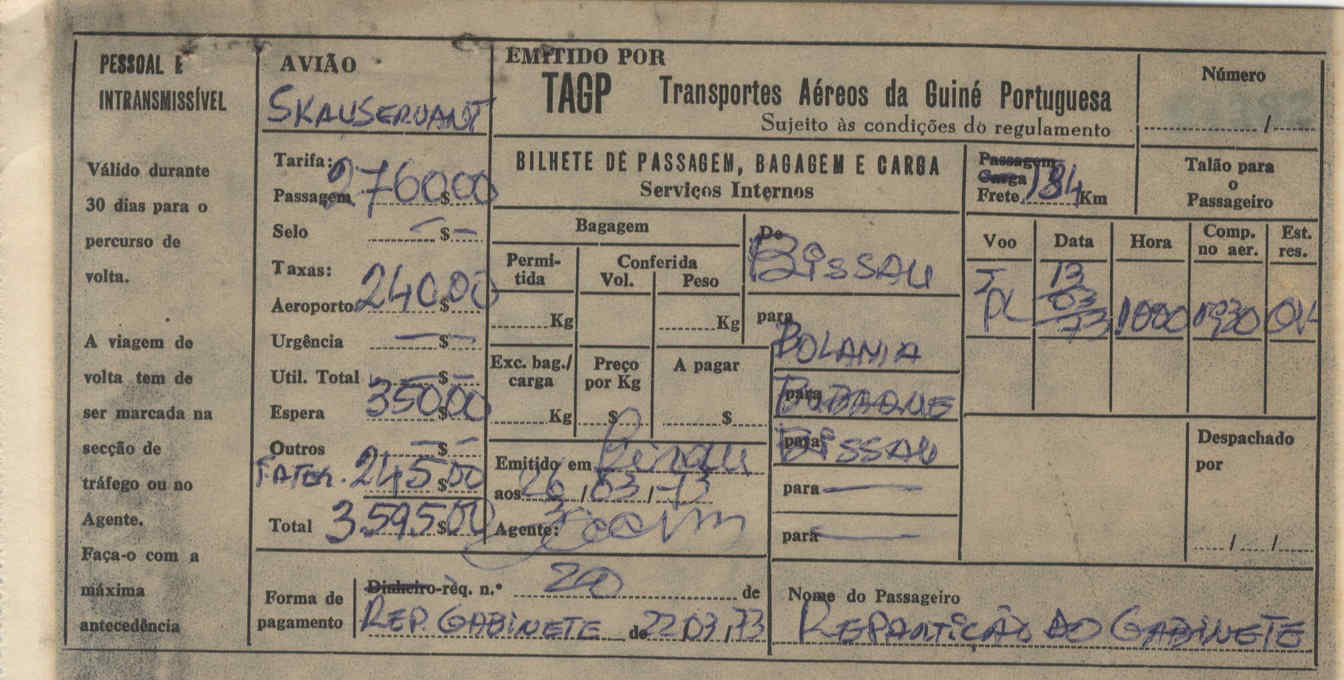 PESSOAL E
INTRANSMISSÍVEL
Válido durante
30 dias para o
percurso de
volta.
A viagem de
volta tem de
ser marcada na
secção de
tráfego ou no
Agente.
Faça-o com a
máxima
antecedência
AVIÃO
Tarifa:
Passagem 2760$00
Selo —$—
Taxas:
Aeroporto 240$00
Urgência —$—
Util. Total —$—
Espera 350$00
Outros —$—
245$00
Total 3.595$00
EMITIDO POR
TAGP Transportes Aéreos da Guiné Portuguesa
Sujeito às condições do regulamento
Número
/
BILHETE DE PASSAGEM, BAGAGEM E CARGA
Serviços Internos
Passagem
Carga
Frete 184 Km
Talão para
o
Passageiro
Bagagem
Permi-
tida
Conferida
Vol. Peso
Kg Kg
Exc. bag./
carga
Preço
por Kg
A pagar
Kg $ $
Emitido em Bissau
aos 26/03/73
Agente:
De
BISSAU
para
BOLAMA
para
BUBAQUE
para
BISSAU
para —
para —
Voo Data Hora Comp.
no aer. Est.
res.
13
03
73 1000 0930 OK
Despachado
por
/ /
Forma de
pagamento
Dinheiro-req. n.º 20 de
REP. GABINETE de 22/03/73
Nome do Passageiro
REPARTIÇÃO DO GABINETE